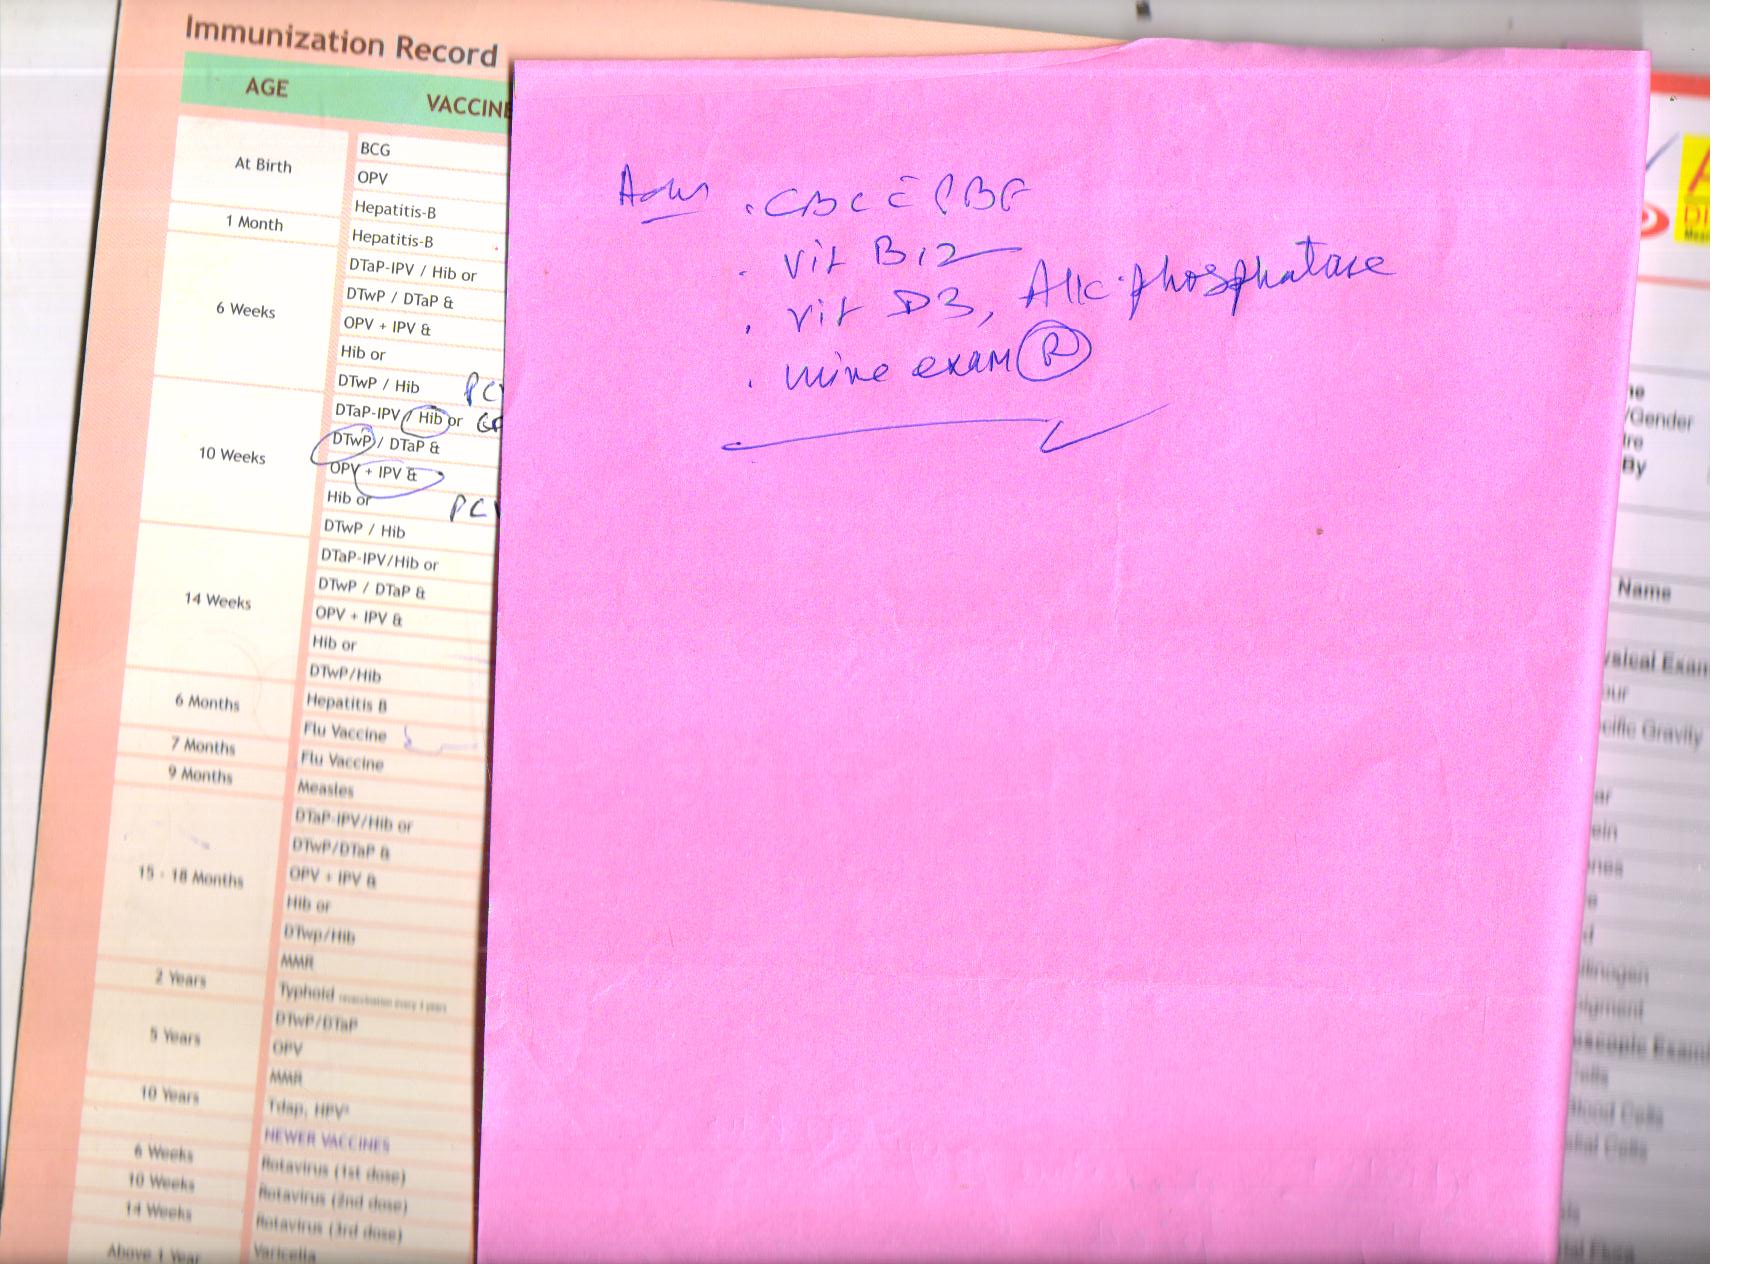 Immunization Record
AGE VACCINE
At Birth
BCG
OPV
Hepatitis-B
1 Month
Hepatitis-B
6 Weeks
DTaP-IPV / Hib or
DTwP / DTaP &
OPV + IPV &
Hib or
DTwP / Hib PC
10 Weeks
DTaP-IPV / Hib or
DTwP / DTaP &
OPV + IPV &
Hib or PC
DTwP / Hib
14 Weeks
DTaP-IPV/Hib or
DTwP / DTaP &
OPV + IPV &
Hib or
DTwP/Hib
6 Months
Hepatitis B
Flu Vaccine
7 Months
Flu Vaccine
9 Months
Measles
15 - 18 Months
DTaP-IPV/Hib or
DTwP/DTaP &
OPV + IPV &
Hib or
DTwp/Hib
MMR
2 Years
Typhoid revaccination every 3 years
5 Years
DTwP/DTaP
OPV
MMR
10 Years
Tdap, HPV
NEWER VACCINES
6 Weeks
Rotavirus (1st dose)
10 Weeks
Rotavirus (2nd dose)
14 Weeks
Rotavirus (3rd dose)
Above 1 Year
Varicella
. CBC c̄ PBF
. vit B12
. vit D3, Alk. phosphatase
. urine exam (R)
/Gender
By
Name
ysical Exam
our
cific Gravity
ar
ein
ones
scopic Exam
Blood Cells
lial Cells